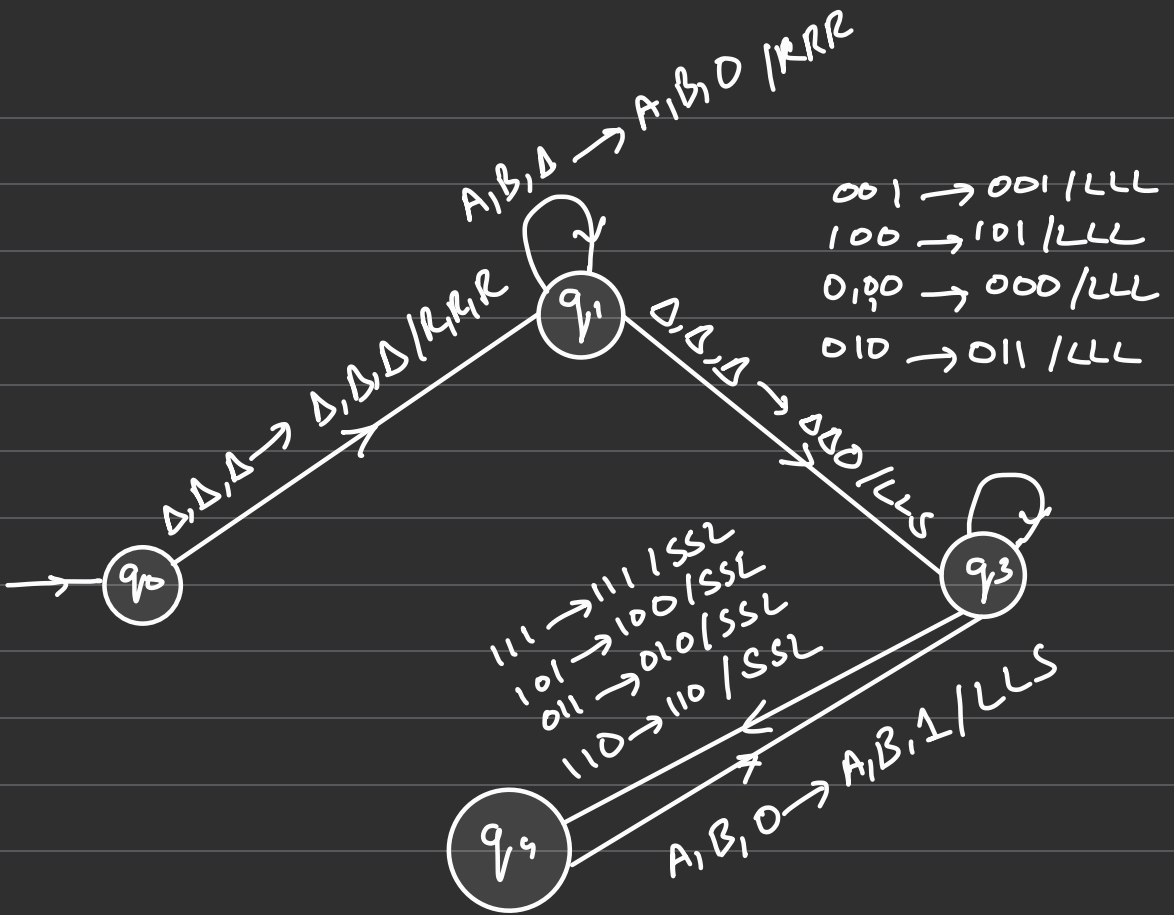 A,B,Δ → A,B,0 /RRR
001 → 001/LLL
100 → 101/LLL
0,00 → 000/LLL
010 → 011/LLL
q1
Δ,Δ,Δ → Δ,Δ,Δ/R,R,R
Δ,Δ,Δ → ΔΔ0/LLS
q0
q3
111 → 111/SSL
101 → 100/SSL
011 → 010/SSL
110 → 110/SSL
A,B,0 → A,B,1/LLS